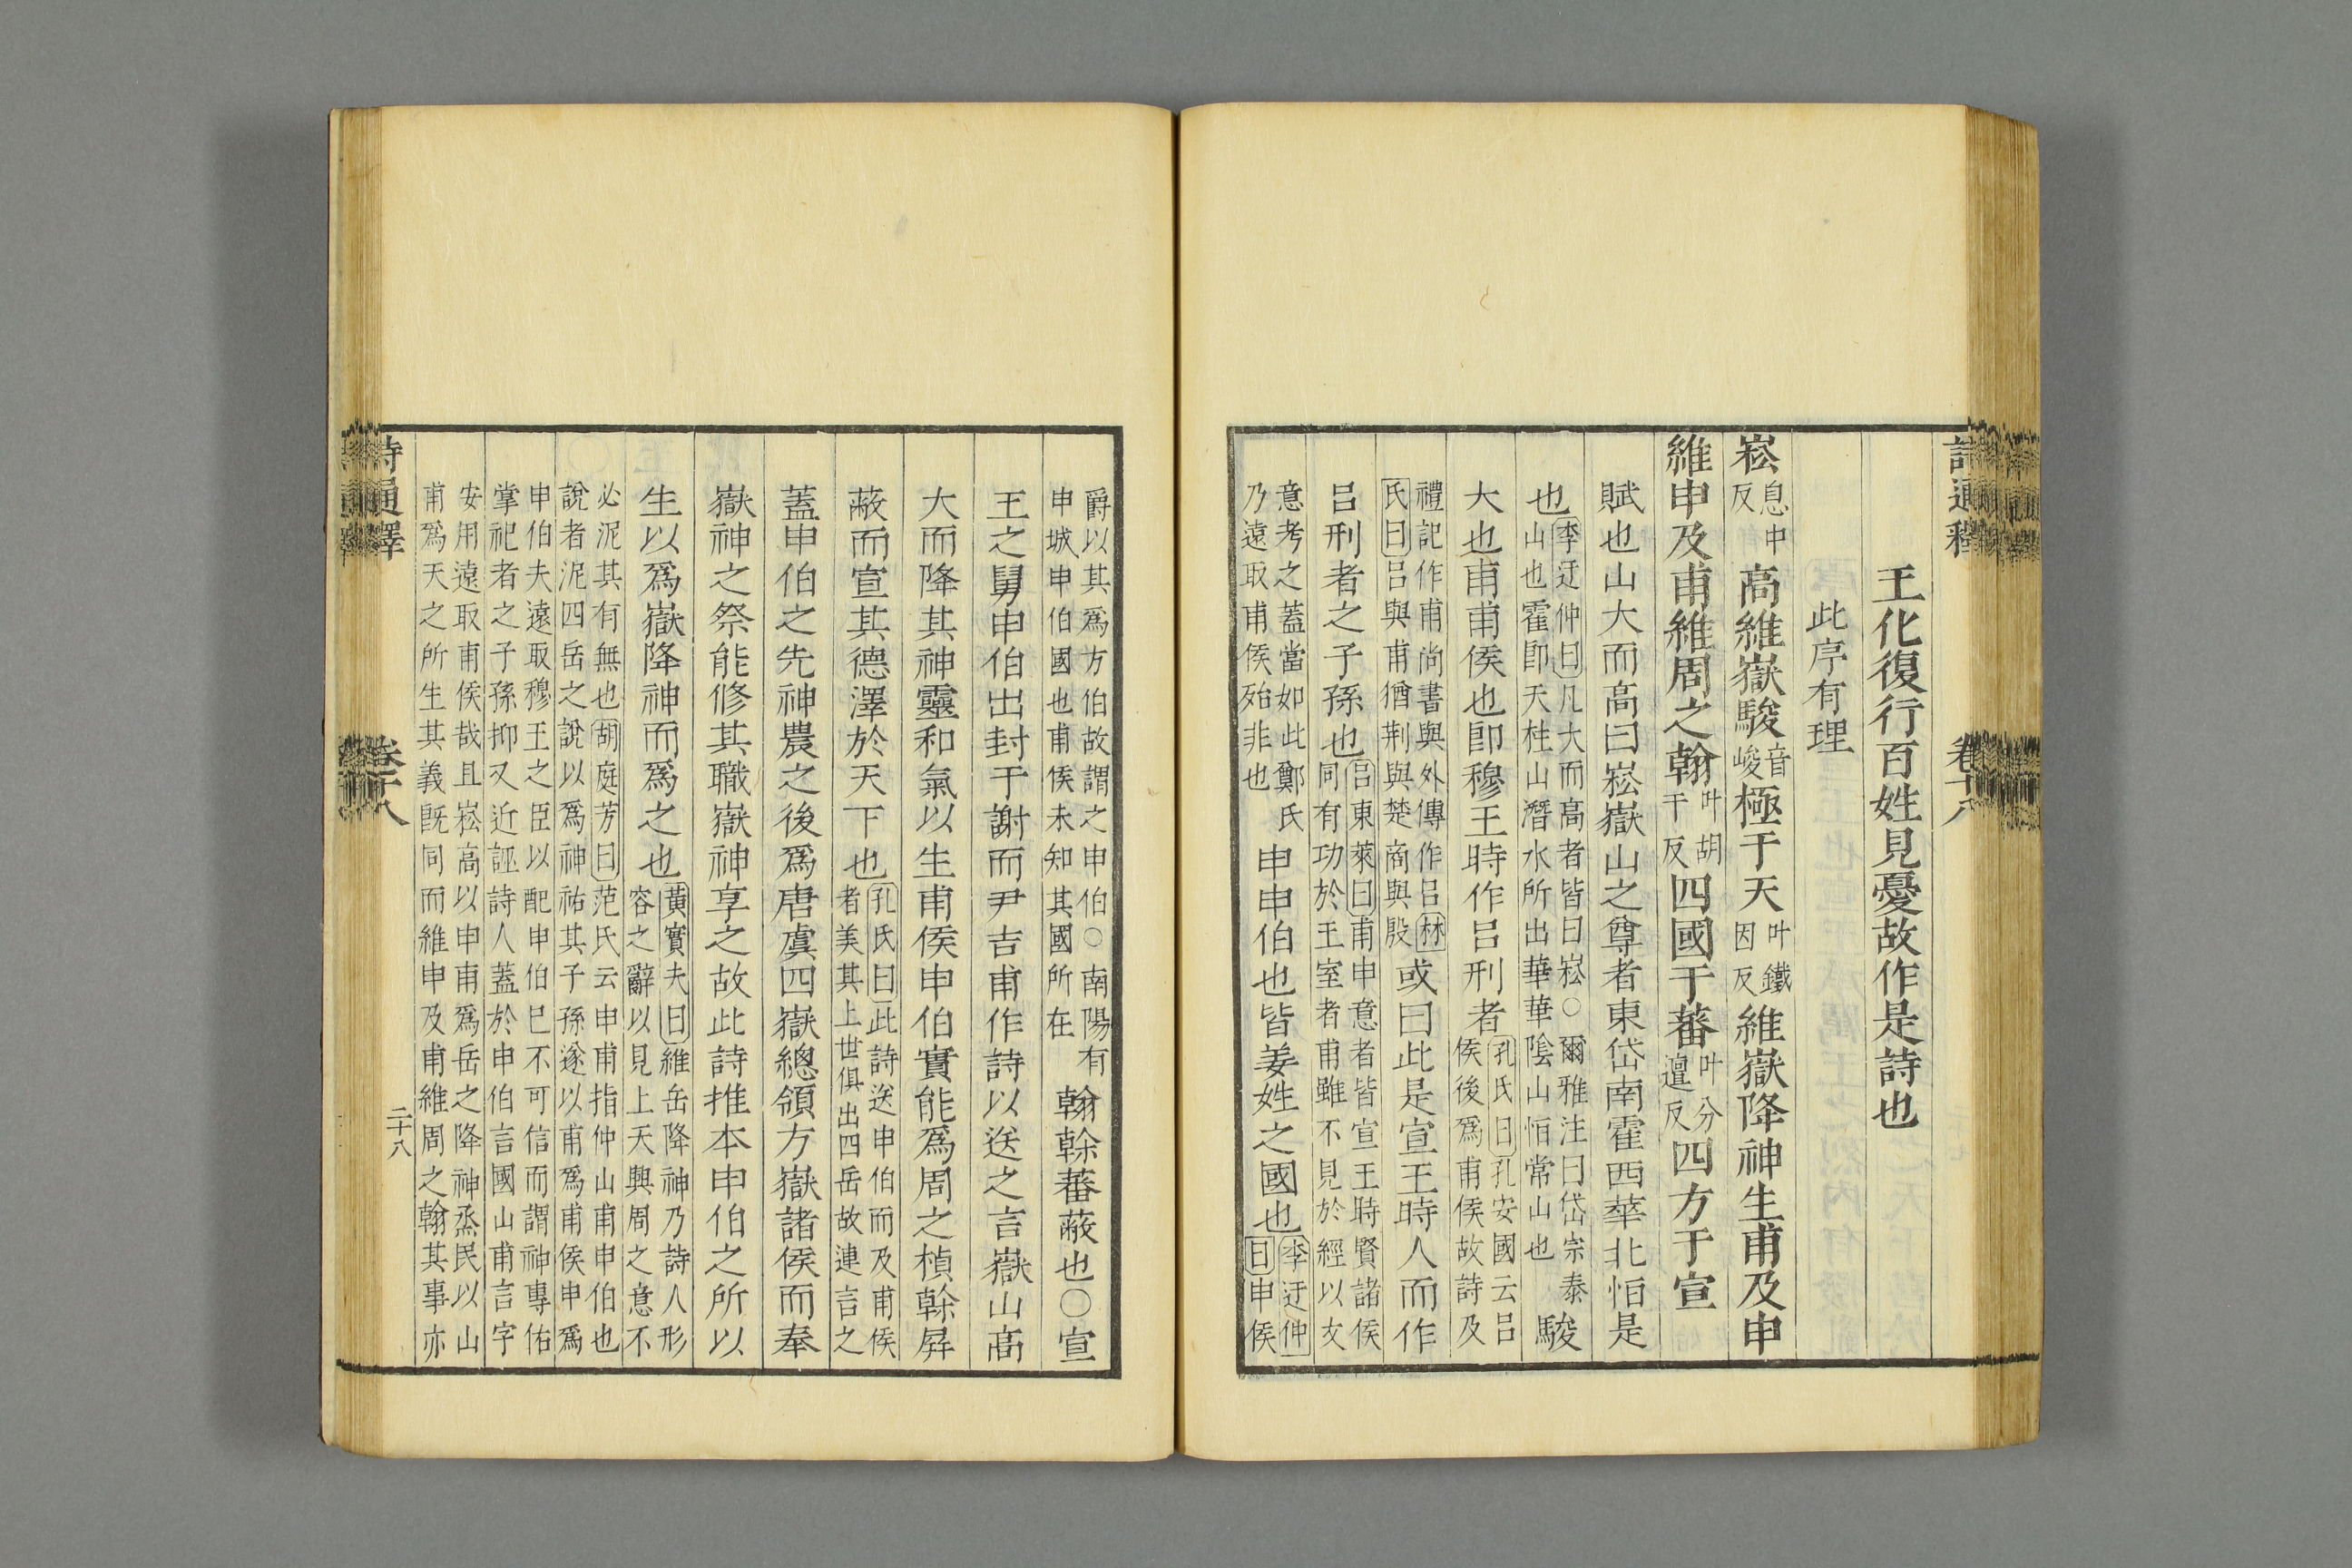 詩通釋 卷十八
王化復行百姓見憂故作是詩也
此序有理
崧息中反高維嶽駿音峻極于天叶鐵因反維嶽降神生甫及申
維申及甫維周之翰叶胡干反四國于蕃叶分邅反四方于宣
賦也山大而高曰崧嶽山之尊者東岱南霍西華北恒是
也李迂仲曰凡大而高者皆曰崧○爾雅注曰岱宗泰山也霍即天柱山潛水所出華華陰山恒常山也駿
大也甫甫侯也即穆王時作呂刑者孔氏曰孔安國云呂侯後為甫侯故詩及
禮記作甫尚書與外傳作呂林氏曰呂與甫猶荆與楚商與殷或曰此是宣王時人而作
呂刑者之子孫也呂東萊曰甫申意者皆宣王時賢諸侯同有功於王室者甫雖不見於經以文
意考之蓋當如此鄭氏乃遠取甫侯殆非也申申伯也皆姜姓之國也李迂仲曰申侯
爵以其爲方伯故謂之申伯○南陽有申城申伯國也甫侯未知其國所在翰榦蕃蔽也○宣
王之舅申伯出封于謝而尹吉甫作詩以送之言嶽山高
大而降其神靈和氣以生甫侯申伯實能爲周之楨榦屏
蔽而宣其德澤於天下也孔氏曰此詩送申伯而及甫侯者美其上世俱出四岳故連言之
蓋申伯之先神農之後爲唐虞四嶽總領方嶽諸侯而奉
嶽神之祭能修其職嶽神享之故此詩推本申伯之所以
生以爲嶽降神而爲之也黃實夫曰維岳降神乃詩人形容之辭以見上天興周之意不
必泥其有無也胡庭芳曰范氏云申甫指仲山甫申伯也說者泥四岳之說以爲神祐其子孫遂以甫爲甫侯申爲
申伯夫遠取穆王之臣以配申伯巳不可信而謂神專佑掌祀者之子孫抑又近誣詩人蓋於申伯言國山甫言字
安用遠取甫侯哉且崧高以申甫爲岳之降神烝民以山甫爲天之所生其義旣同而維申及甫維周之翰其事亦
詩通釋 卷十八 二十八